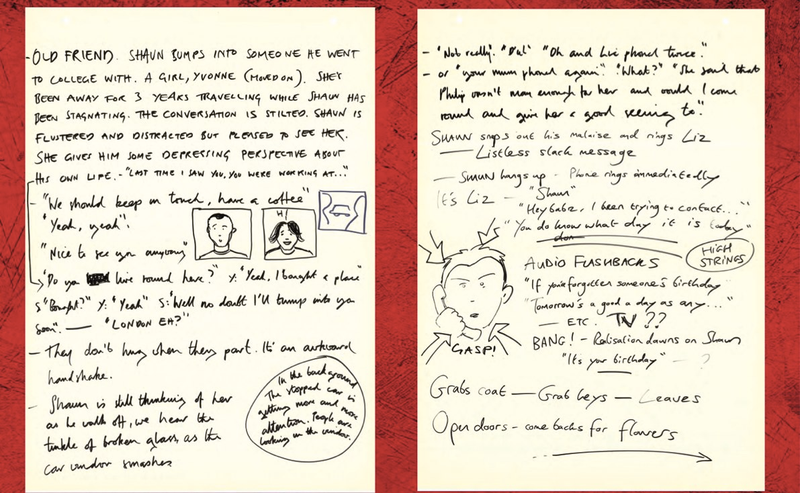 - OLD FRIEND. SHAUN BUMPS INTO SOMEONE HE WENT
TO COLLEGE WITH. A GIRL, YVONNE (MOVED ON). SHE'S
BEEN AWAY FOR 3 YEARS TRAVELLING WHILE SHAUN HAS
BEEN STAGNATING. THE CONVERSATION IS STILTED. SHAUN IS
FLUSTERED AND DISTRACTED BUT PLEASED TO SEE HER.
SHE GIVES HIM SOME DEPRESSING PERSPECTIVE ABOUT
HIS OWN LIFE. - "LAST TIME I SAW YOU, YOU WERE WORKING AT..."
- "We should keep in touch, have a coffee"
"Yeah, yeah".
"Nice to see you anyway"
HI
"Do you live round here?" Y: "Yeah, I bought a place"
S "Bought?" Y: "Yeah" S: "Well no doubt I'll bump into you
soon". — "LONDON EH?"
- They don't hug when they part. It's an awkward
handshake.
- Shaun is still thinking of her
as he walks off, we hear the
tinkle of broken glass, as the
car window smashes
In the background
The stopped car is
getting more and more
attention. People are
looking in the window.
- "Not really". "Out" "Oh and Liz phoned twice."
- or "your mum phoned again". "What?" "She said that
Philip wasn't man enough for her and would I come
round and give her a good seeing to".
SHAUN snaps out his malaise and rings Liz
— Listless slack message
— SHAUN hangs up - Phone rings immediately
It's Liz — "Shaun"
"Hey babe, I been trying to contact..."
"You do know what day it is today"
HIGH
STRINGS
AUDIO FLASHBACKS
"If you've forgotten someone's birthday
"Tomorrow's a good a day as any..."
— ETC. TV ??
GASP!
BANG! - Realisation dawns on Shaun
"It's your birthday" — ?
Grabs coat — Grab keys — Leaves
Open doors - come backs for flowers